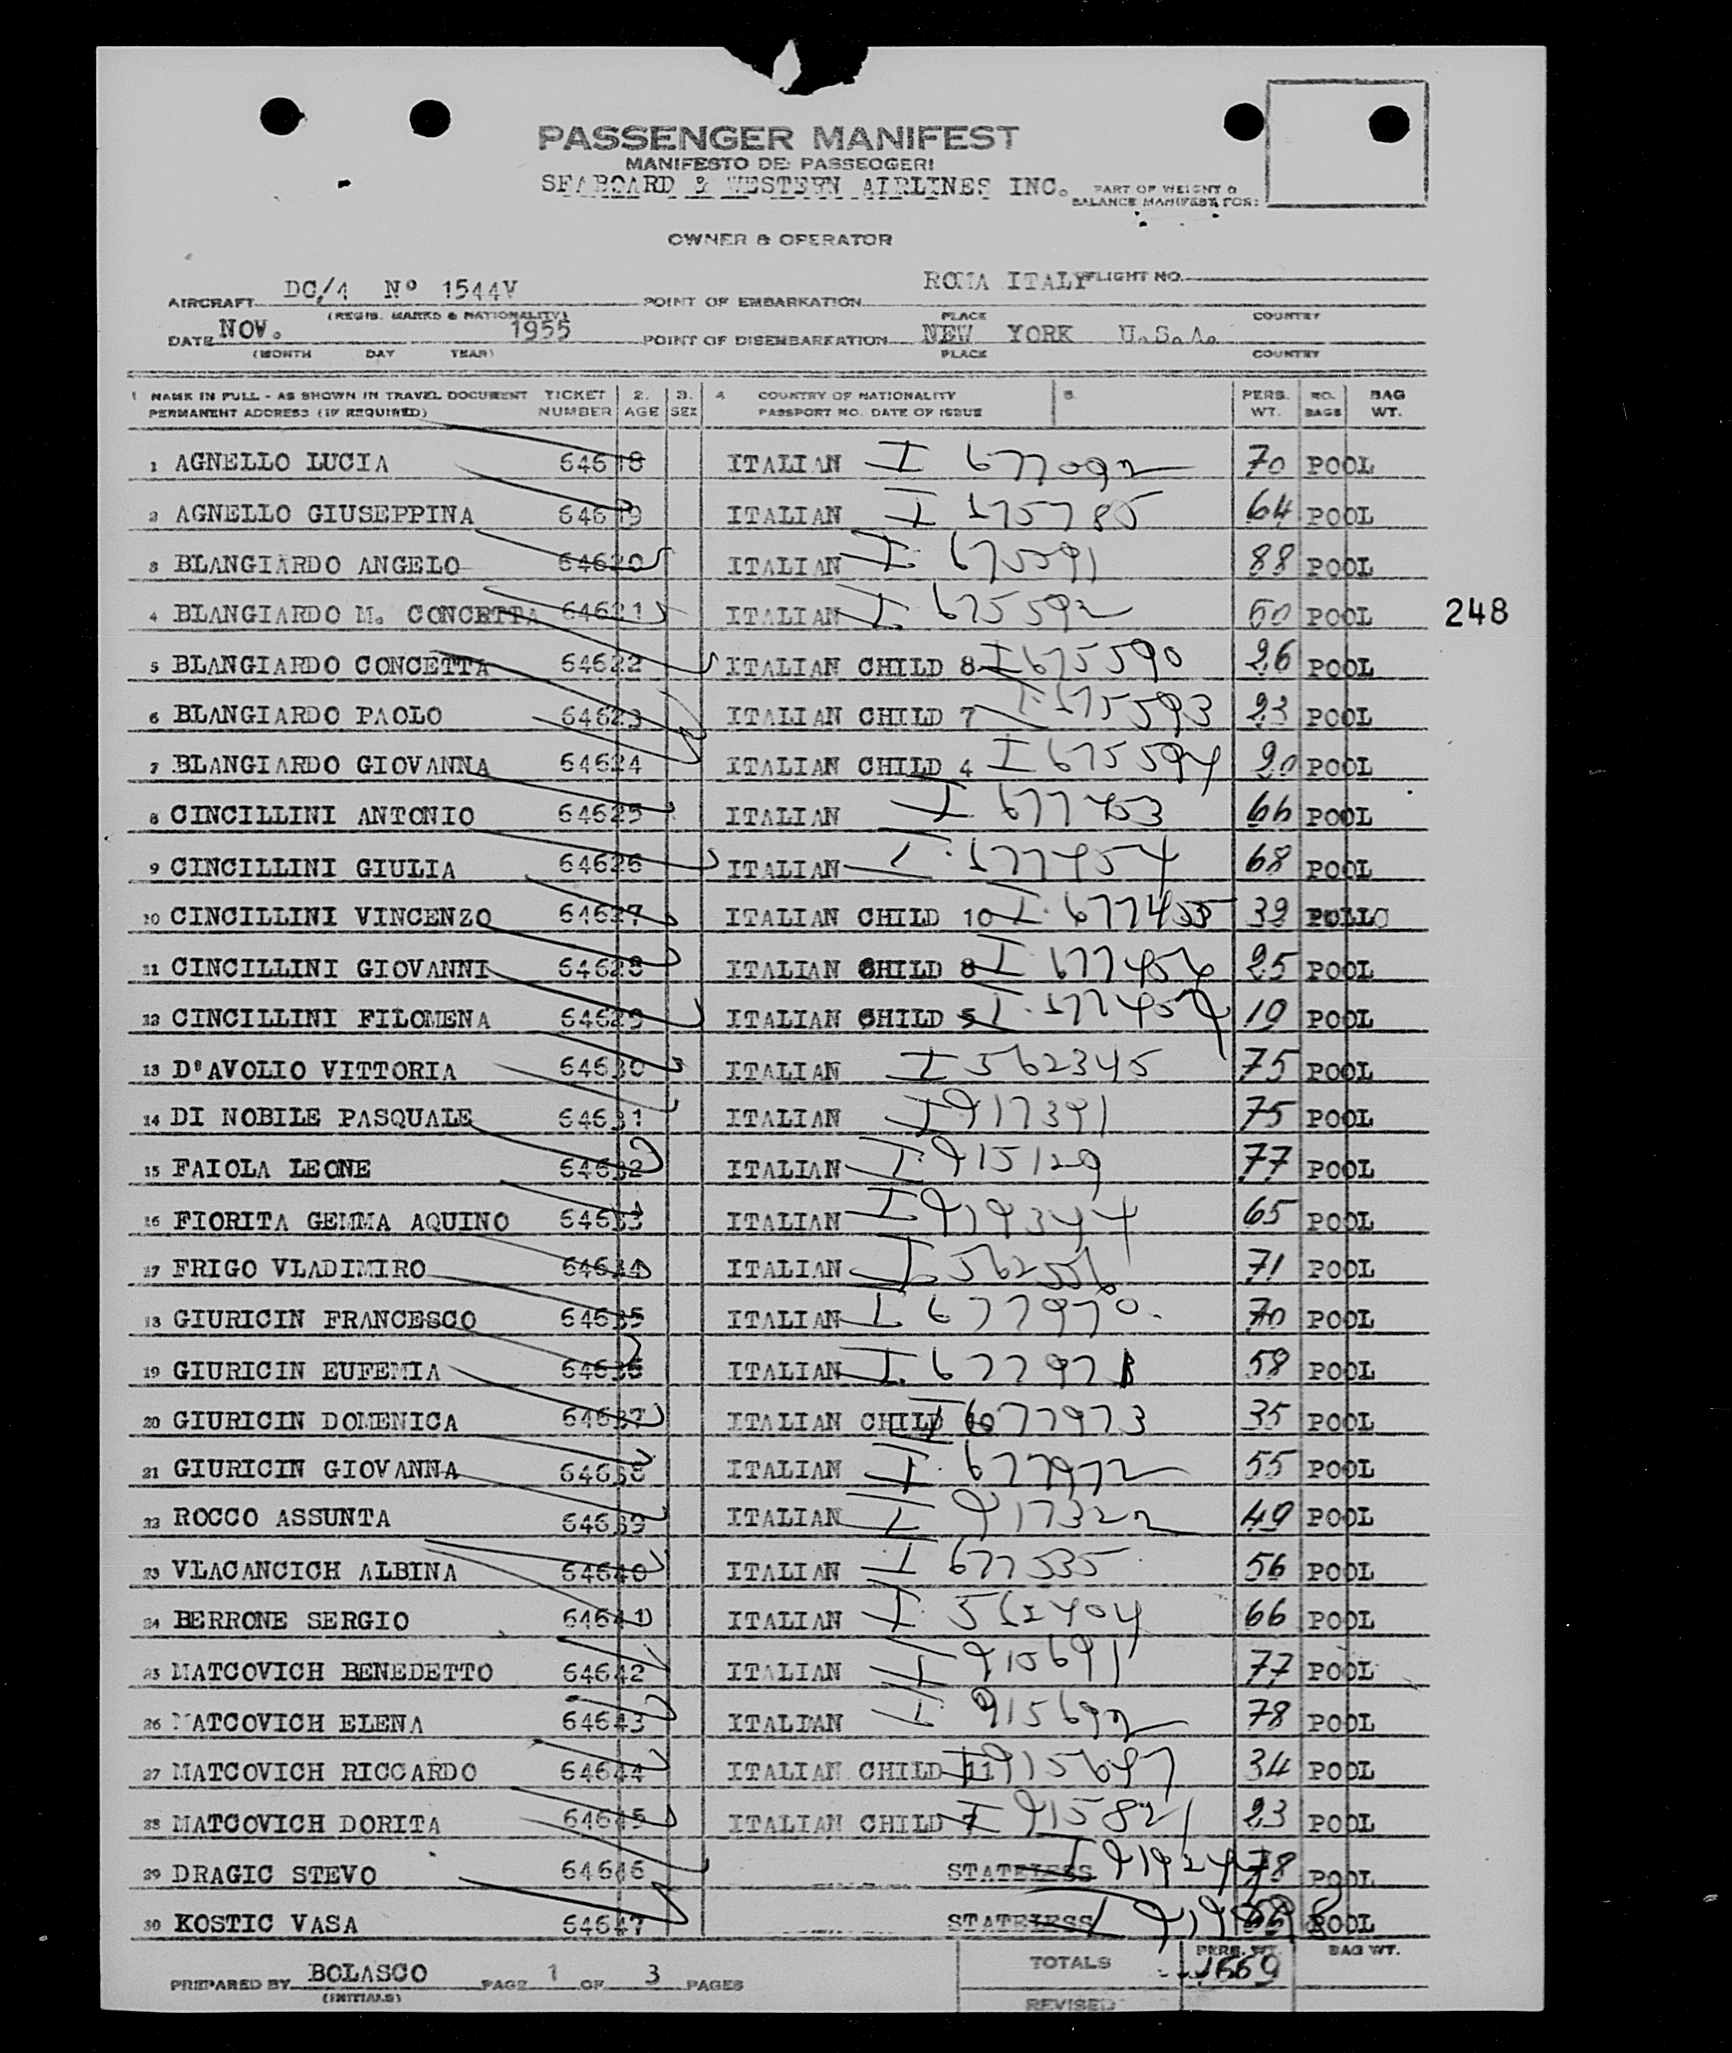 PASSENGER MANIFEST
MANIFESTO DEI PASSEGGERI
SEABOARD & WESTERN AIRLINES INC.
PART OF WEIGHT &
BALANCE MANIFEST FOR:
OWNER & OPERATOR
AIRCRAFT DC/4 Nº 1544V POINT OF EMBARKATION ROMA ITALY FLIGHT NO.
(REGIS. MARKS & NATIONALITY) PLACE COUNTRY
DATE NOV. 1955 POINT OF DISEMBARKATION NEW YORK U.S.A.
(MONTH DAY YEAR) PLACE COUNTRY
1 NAME IN FULL - AS SHOWN IN TRAVEL DOCUMENT TICKET 2. 3. 4 COUNTRY OF NATIONALITY 5. PERS. NO. BAG
PERMANENT ADDRESS (IF REQUIRED) NUMBER AGE SEX PASSPORT NO. DATE OF ISSUE WT. BAGS WT.
1 AGNELLO LUCIA 64618 ITALIAN I 677092 70 POOL
2 AGNELLO GIUSEPPINA 64619 ITALIAN I 64 POOL
3 BLANGIARDO ANGELO 64620 ITALIAN I 675591 88 POOL
4 BLANGIARDO M. CONCETTA 64621 ITALIAN I 675592 60 POOL
248
5 BLANGIARDO CONCETTA 64622 ITALIAN CHILD 8 I 675590 26 POOL
6 BLANGIARDO PAOLO 64623 ITALIAN CHILD 7 I 675593 23 POOL
7 BLANGIARDO GIOVANNA 64624 ITALIAN CHILD 4 I 675594 20 POOL
8 CINCILLINI ANTONIO 64625 ITALIAN I 677453 66 POOL
9 CINCILLINI GIULIA 64626 ITALIAN I 677454 68 POOL
10 CINCILLINI VINCENZO 64627 ITALIAN CHILD 10 I 677455 39 POLLO
11 CINCILLINI GIOVANNI 64628 ITALIAN CHILD 8 I 677456 25 POOL
12 CINCILLINI FILOMENA 64629 ITALIAN CHILD 5 I 19 POOL
13 D'AVOLIO VITTORIA 64630 ITALIAN I 562345 75 POOL
14 DI NOBILE PASQUALE 64631 ITALIAN I 917391 75 POOL
15 FAIOLA LEONE 64632 ITALIAN I 915129 77 POOL
16 FIORITA GEMMA AQUINO 64633 ITALIAN I 919344 65 POOL
17 FRIGO VLADIMIRO 64634 ITALIAN I 562556 71 POOL
18 GIURICIN FRANCESCO 64635 ITALIAN I 677970 70 POOL
19 GIURICIN EUFEMIA 64636 ITALIAN I 677971 58 POOL
20 GIURICIN DOMENICA 64637 ITALIAN CHILD 10 I 677973 35 POOL
21 GIURICIN GIOVANNA 64638 ITALIAN I 677972 55 POOL
22 ROCCO ASSUNTA 64639 ITALIAN I 917322 49 POOL
23 VLACANCICH ALBINA 64640 ITALIAN I 677535 56 POOL
24 BERRONE SERGIO 64641 ITALIAN I 562404 66 POOL
25 MATCOVICH BENEDETTO 64642 ITALIAN I 915691 77 POOL
26 MATCOVICH ELENA 64643 ITALIAN I 915692 78 POOL
27 MATCOVICH RICCARDO 64644 ITALIAN CHILD 11 I 915697 34 POOL
28 MATCOVICH DORITA 64645 ITALIAN CHILD 7 I 915821 23 POOL
29 DRAGIC STEVO 64646 STATELESS I 78 POOL
30 KOSTIC VASA 64647 STATELESS I POOL
TOTALS PERS. WT. 1669 BAG WT.
PREPARED BY BOLASCO PAGE 1 OF 3 PAGES
(INITIALS)
REVISED